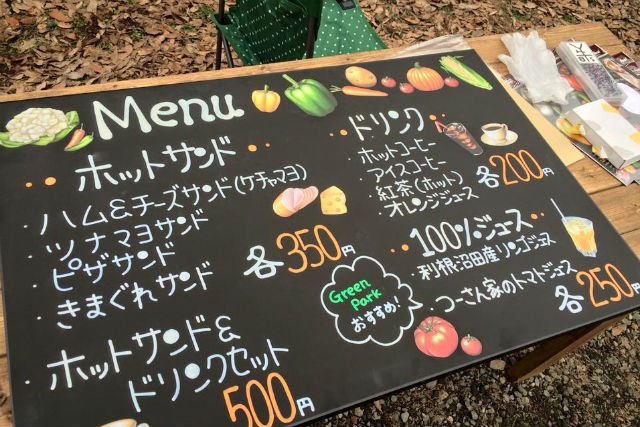 Menu
ホットサンド
・ハム&チーズサンド(ケチャマヨ)
・ツナマヨサンド
・ピザサンド
・きまぐれサンド
各350円
・ホットサンド&
ドリンクセット
500円
ドリンク
・ホットコーヒー
・アイスコーヒー
・紅茶(ホット)
・オレンジジュース
各200円
100%ジュース
・利根沼田産リンゴジュース
・つーさん家のトマトジュース
各250円
Green
Park
おすすめ!